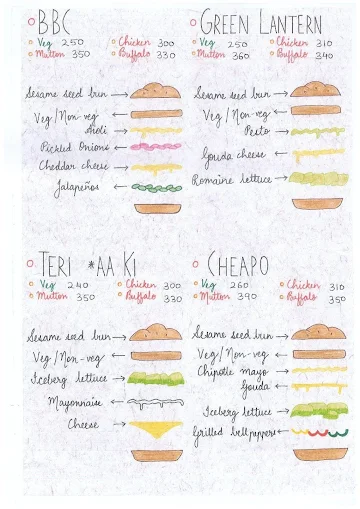 BBC
Veg 250
Chicken 300
Mutton 350
Buffalo 330
Sesame seed bun
Veg/Non-veg
Aioli
Pickled Onions
Cheddar cheese
Jalapeños
GREEN LANTERN
Veg 250
Chicken 310
Mutton 360
Buffalo 340
Sesame seed bun
Veg/Non-veg
Pesto
Gouda cheese
Romaine lettuce
TERI *AA KI
Veg 240
Chicken 300
Mutton 350
Buffalo 330
Sesame seed bun
Veg/Non-veg
Iceberg lettuce
Mayonnaise
Cheese
CHEAPO
Veg 260
Chicken 310
Mutton 390
Buffalo 350
Sesame seed bun
Veg/Non-veg
Chipotle mayo
Gouda
Iceberg lettuce
Grilled bell peppers